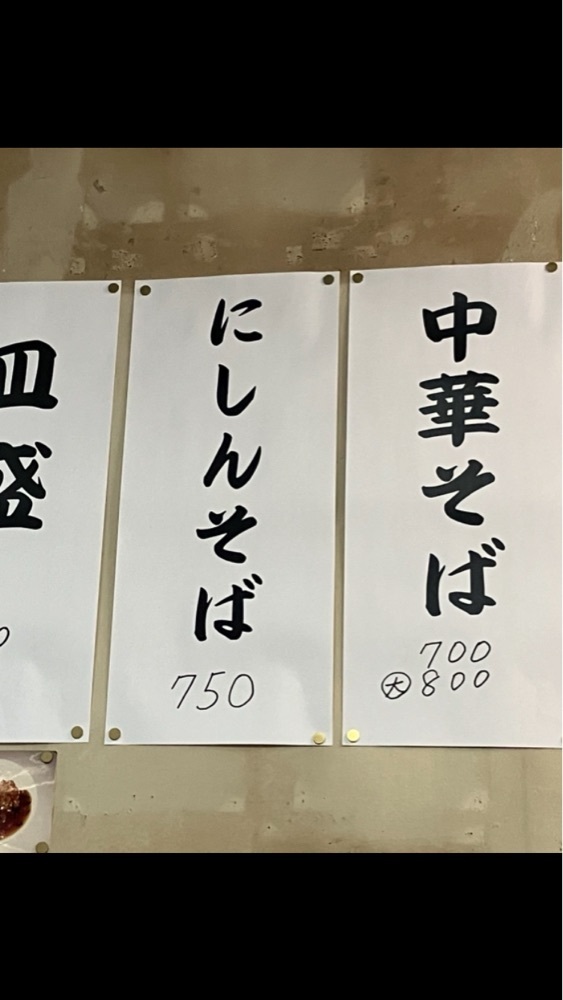 中華そば
700
大800
にしんそば
750
皿盛
0